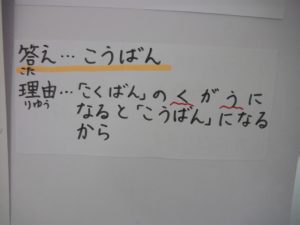 答え…こうばん
こた
理由…「こくばん」の く が う に
りゆう
なると「こうばん」になる
から